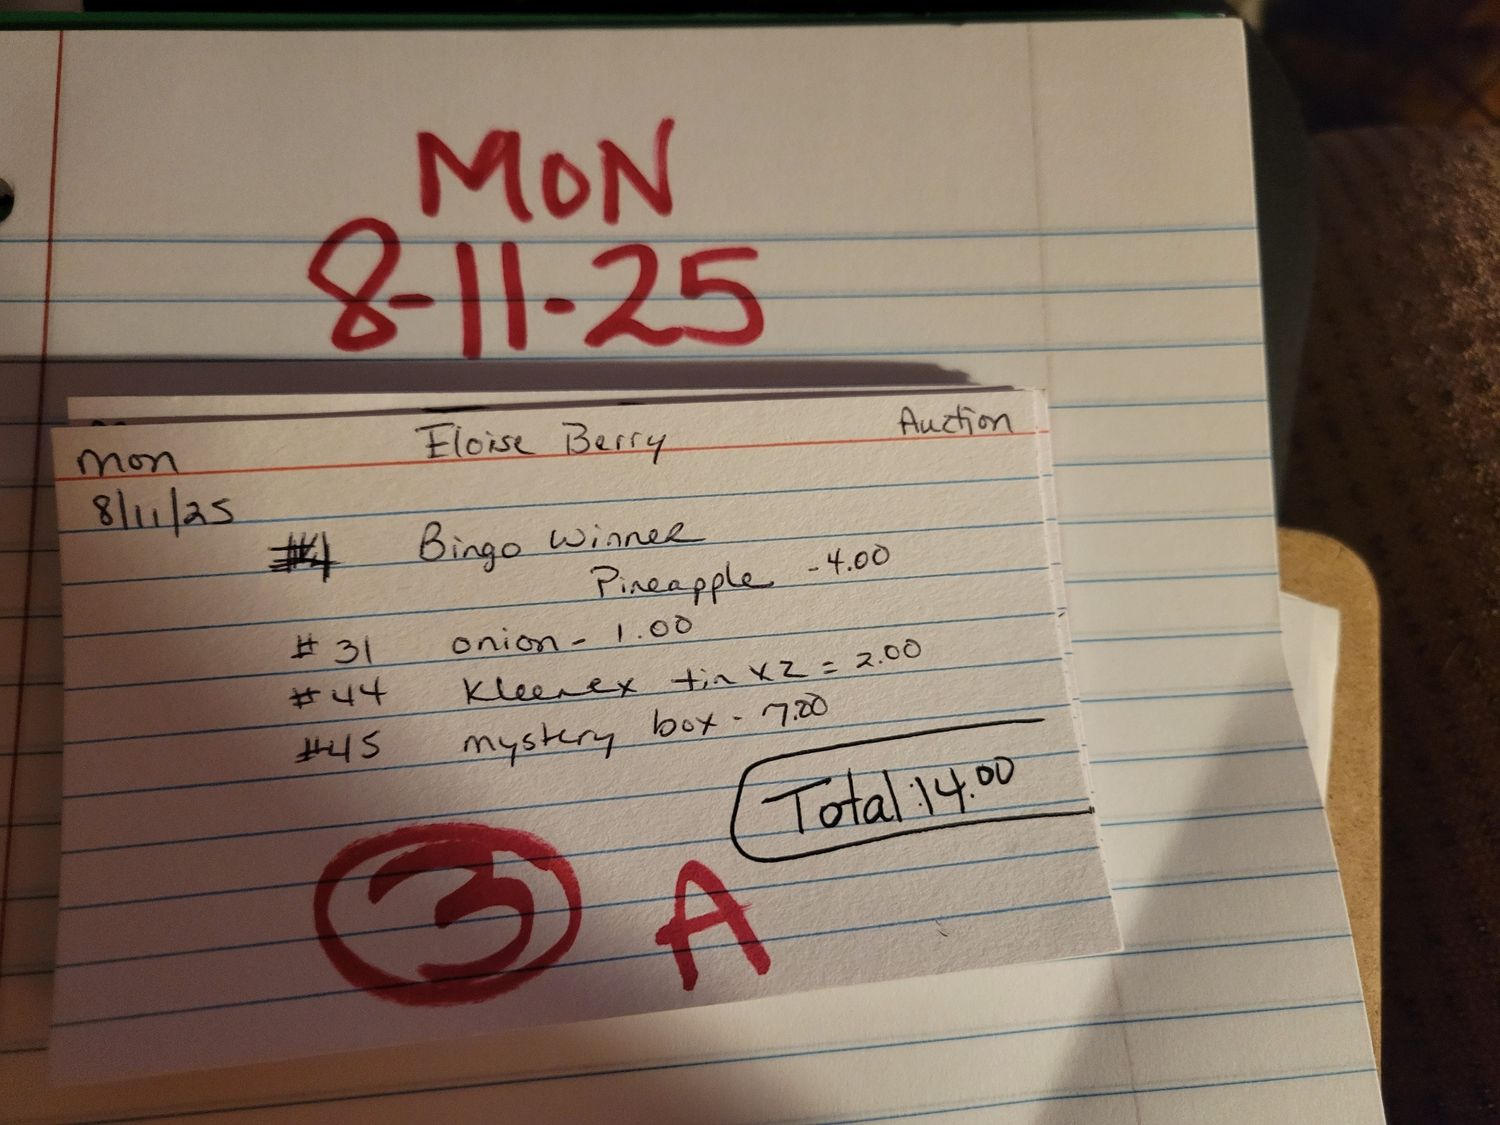 MON
8-11-25
Mon Eloise Berry Auction
8/11/25
Bingo Winner
Pineapple - 4.00
# 31 onion - 1.00
# 44 Kleenex tin x2 = 2.00
#45 mystery box - 7.00
Total: 14.00
3 A